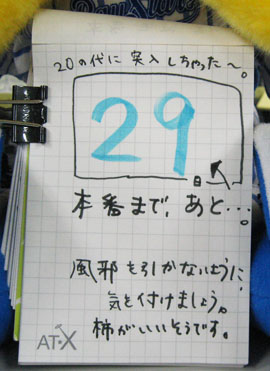 20の代に突入しちゃった〜。
29
日
本番まで、あと…。
風邪を引かないように、
気を付けましょう。
柿がいいそうです。
AT-X